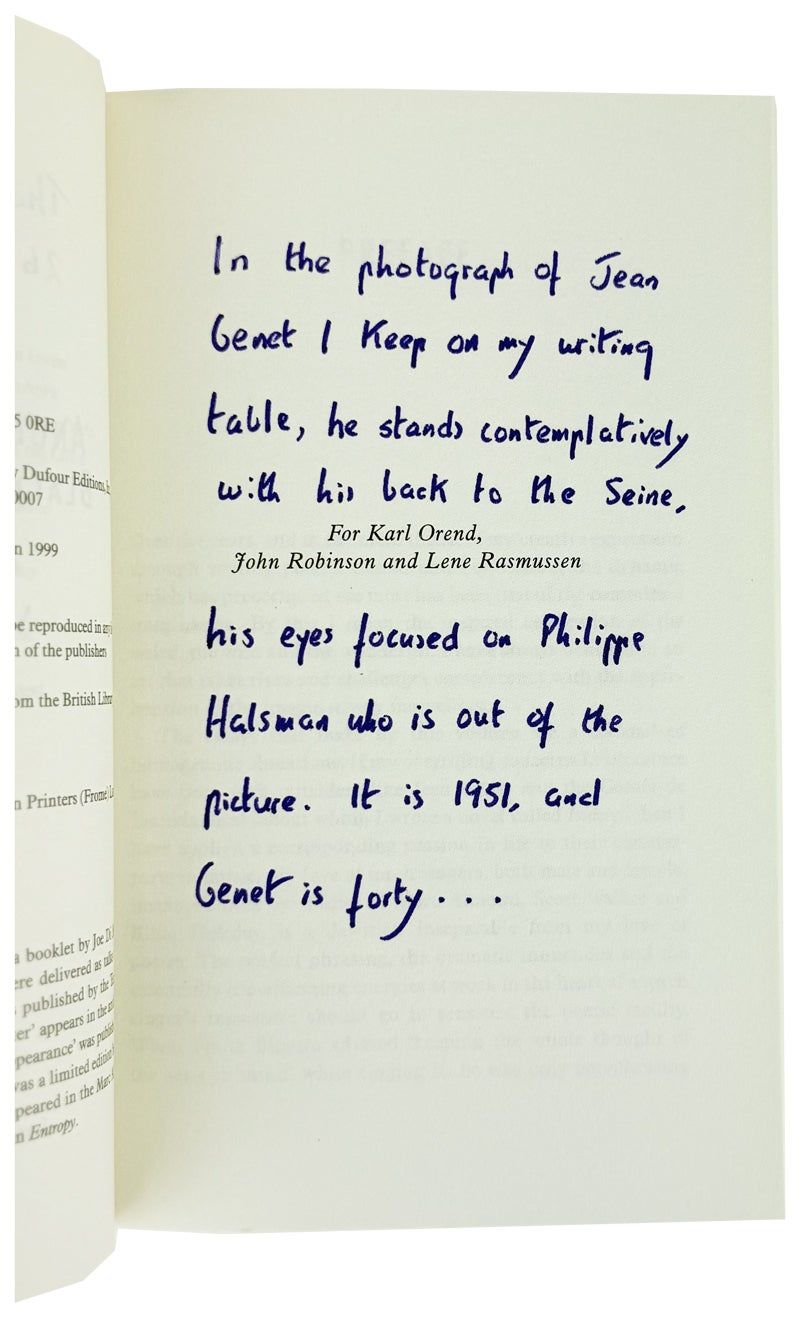 5 0RE
Dufour Editions,
0007
n 1999
be reproduced in
n of the publishers
om the British
n Printers (Frome)
a booklet by Joe
ere delivered as
published by the
er' appears in the
pearance' was
was a limited edition
peared in the
n Entropy.
In the photograph of Jean
Genet I Keep on my writing
table, he stands contemplatively
with his back to the Seine,
For Karl Orend,
John Robinson and Lene Rasmussen
his eyes focused on Philippe
Halsman who is out of the
picture. It is 1951, and
Genet is forty....